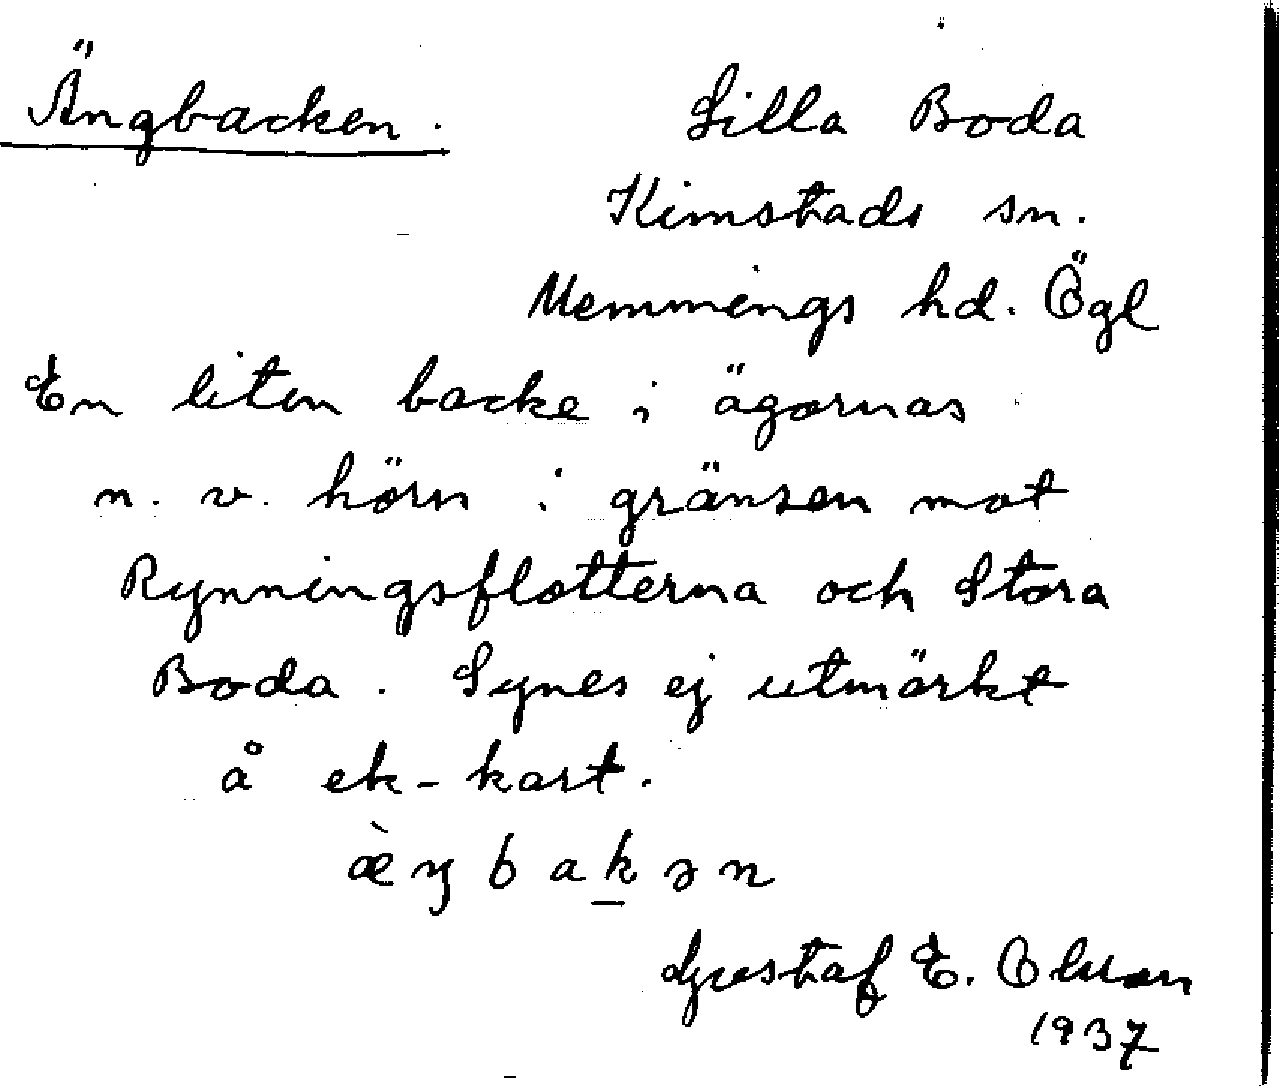 Ängbacken. Lilla Boda
Kimstads sn.
Memmings hd. Ögl
En liten backe i ägornas
n. v. hörn i gränsen mot
Rynningsflotterna och Stora
Boda. Synes ej utmärkt
å ek-kart.
æ̀ŋbak̲ən
Gustaf E. Olsson
1937